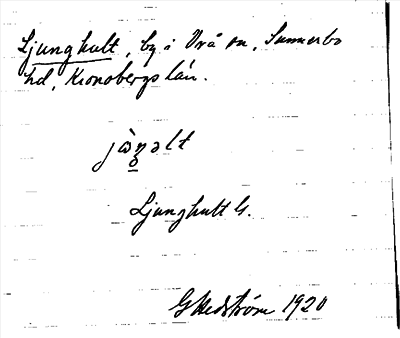 Ljunghult, by i Vrå sn, Sunnerbo
hd, Kronobergs län.
Ljunghult G.
G Hedström 1920